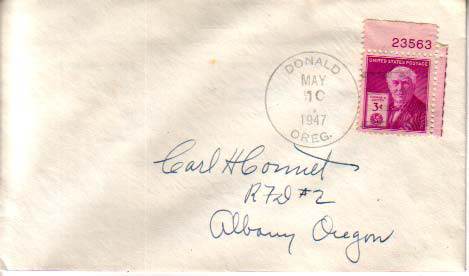 23563
UNITED STATES POSTAGE
3¢
DONALD
MAY
10
1947
OREG.
Carl H Connet
RFD #2
Albany Oregon